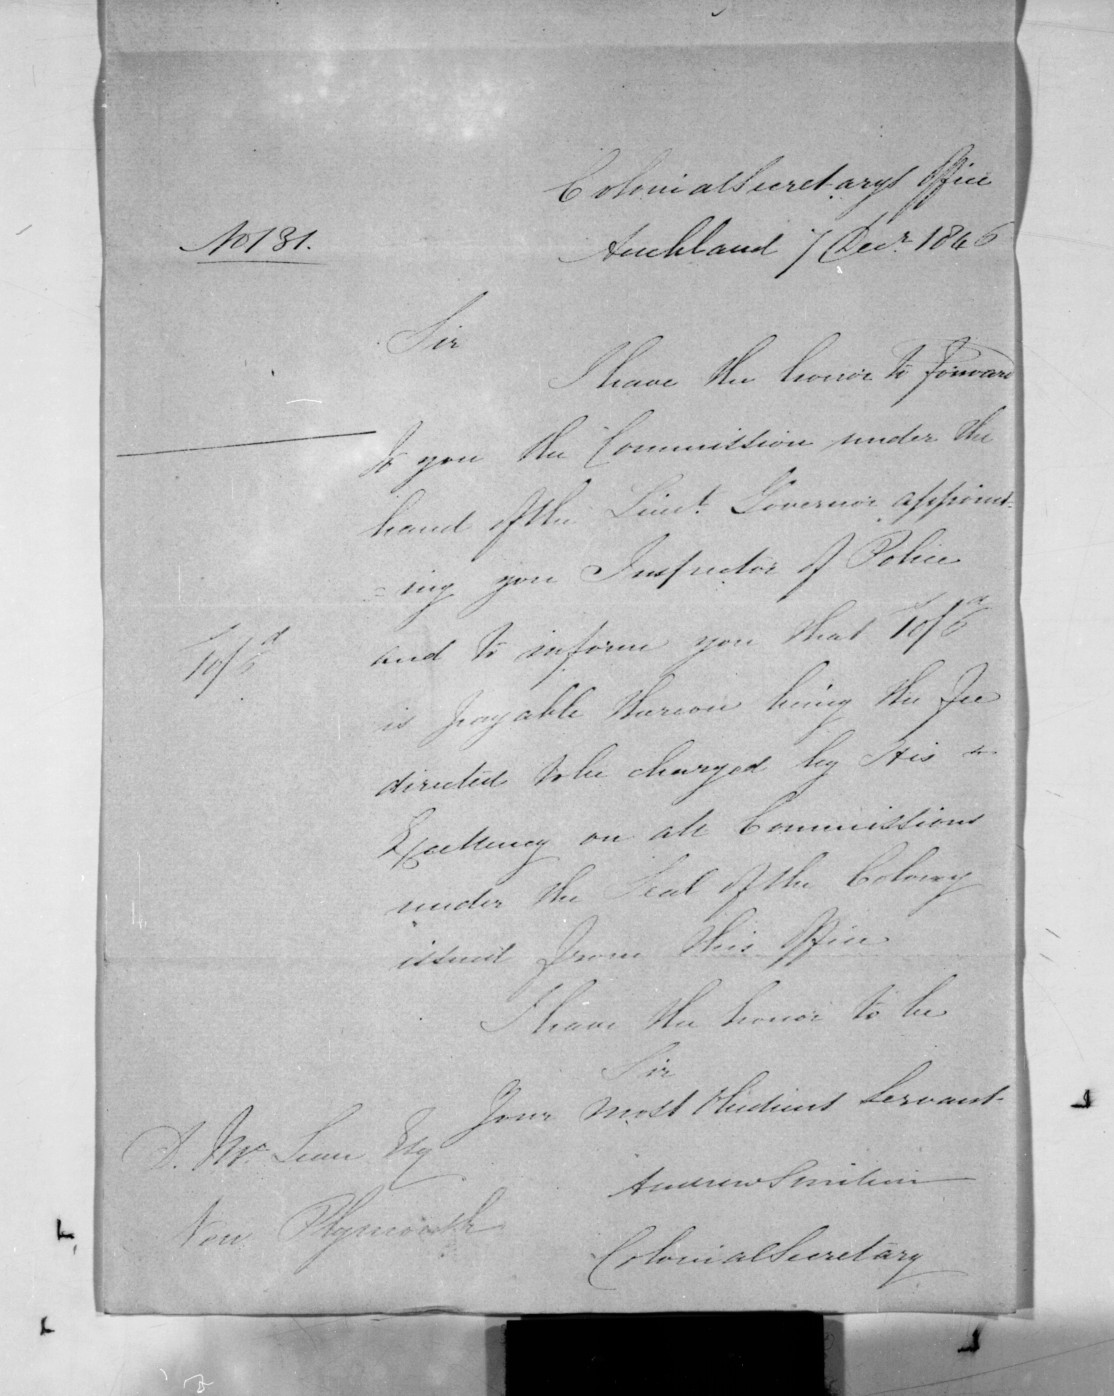 Colonial Secretarys Office
No 131.
Auckland 7 Decr 1846
Sir
I have the honor to forward
to you the Commission under the
hand of the Lieut. Governor appoint-
-ing you Inspector of Police
and to inform you that 10/6d
10/6d
is payable thereon being the Fee
directed to be charged by His
Excellency on all Commissions
under the Seal of the Colony
issued from this Office
I have the honor to be
Sir
Your most Obedient Servant
D. Mc Lean Esq
Andrew Sinclair
New Plymouth
Colonial Secretary